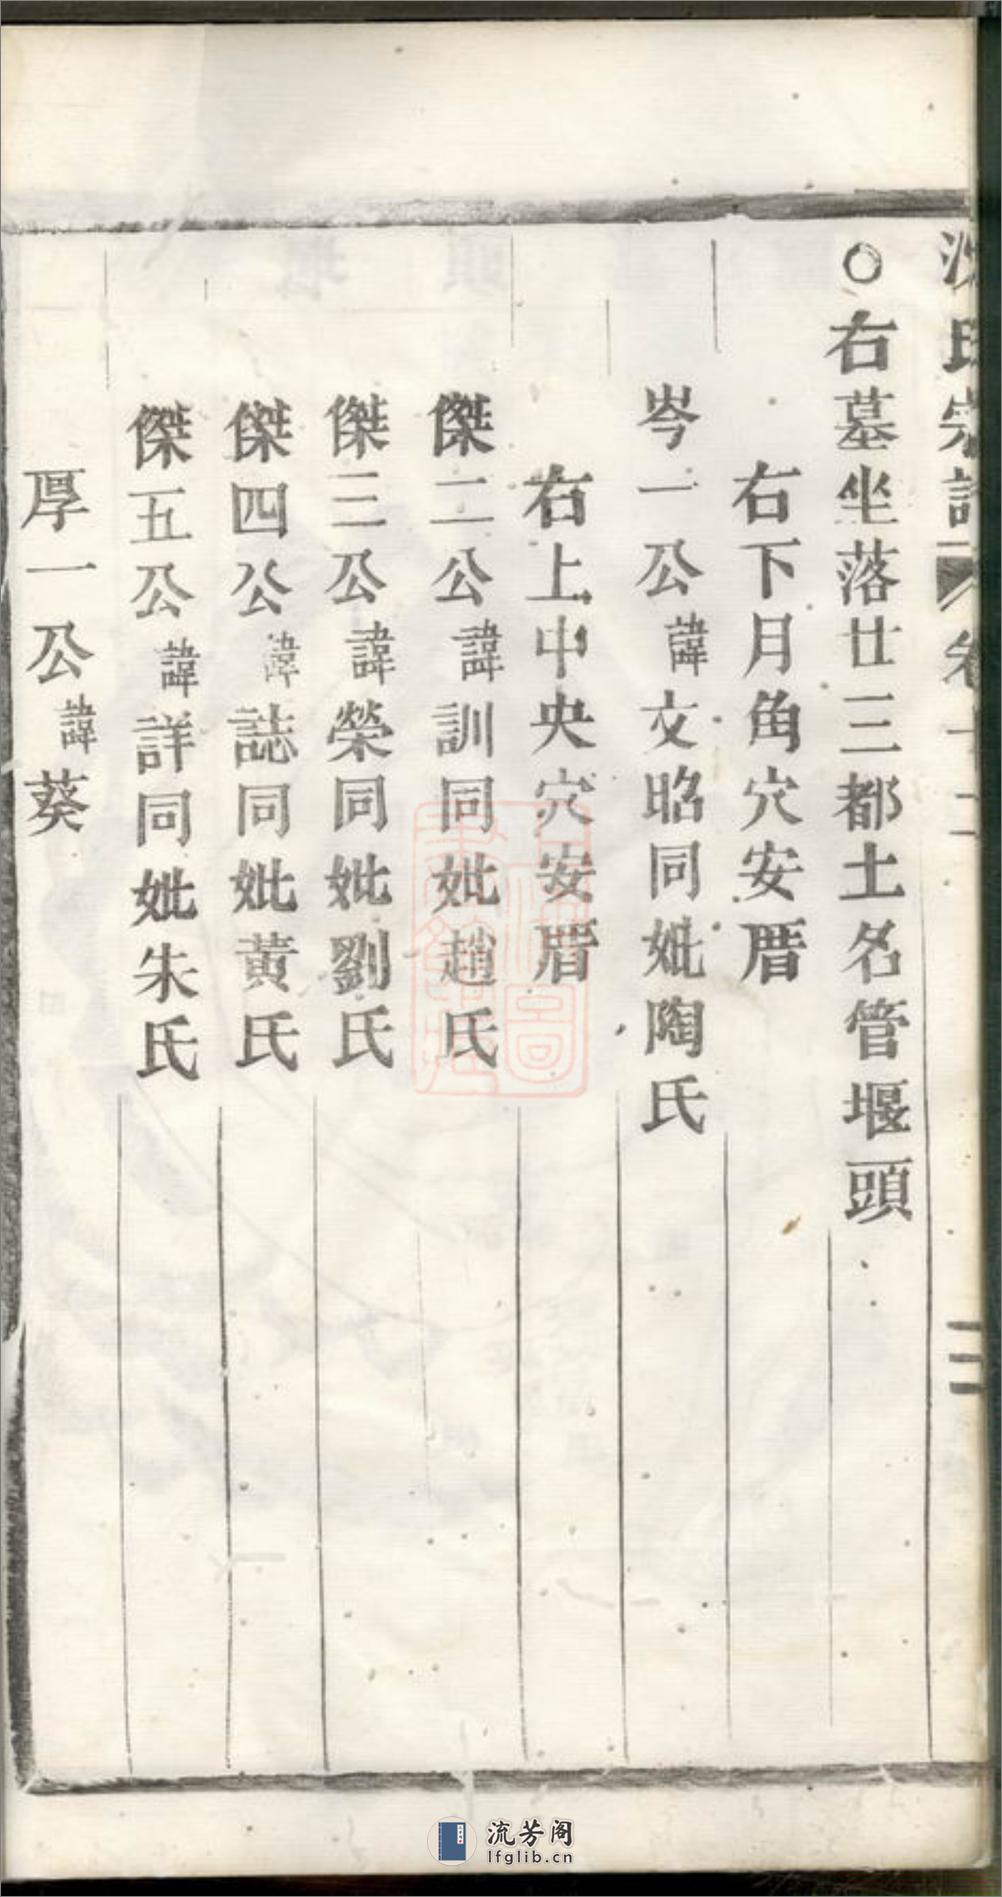 氏宗譜 卷十二 三
○右墓坐落廿三都土名管堰頭
右下月角穴安厝
岑一公諱文昭同妣陶氏
右上中央穴安厝
傑二公諱訓同妣趙氏
傑三公諱榮同妣劉氏
傑四公諱誌同妣黃氏
傑五公諱詳同妣朱氏
厚一公諱葵
流芳阁
lfglib.cn